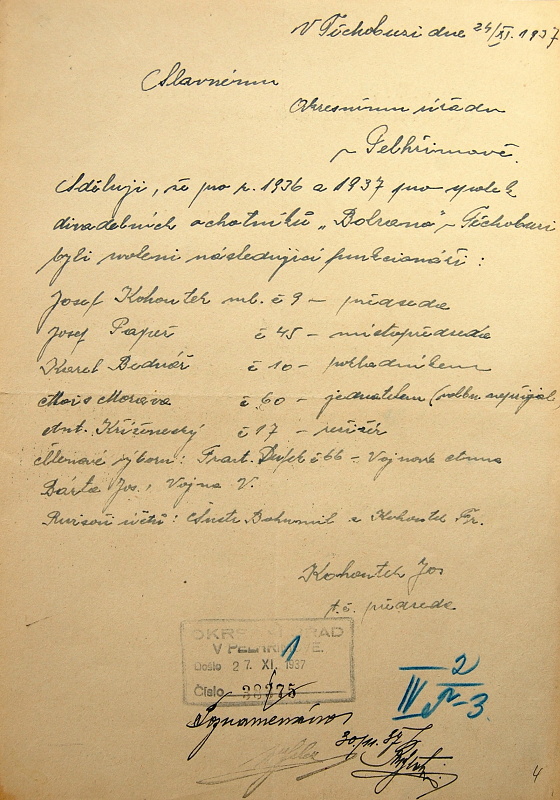 V Těchobuzi dne 24/XI. 1937
Slavnému
Okresnímu úřadu
v Pelhřimově.
Sděluji, že pro r. 1936 a 1937 pro spolek
divadelních ochotníků „Bolrana" v Těchobuzi
byli voleni následující funkcionáři :
Josef Kohoutek ml. č 9 – předseda
Josef Papež č 45 – místopředseda
Karel Bednář č 10 – pokladníkem
Alois Morava č. 60 – jednatelem (volbu nepřijal
Ant. Kříženecký č 17 – režisér
Členové výboru : Frant. č 66 – Vojnová Anna
Bárta Jos., Vojna V.
Revisoři účtů : Bohumil a Kohoutek Fr.
Kohoutek Jos
t. č. předseda
OKRESNÍ ÚŘAD
V PELHŘIMOVĚ.
Došlo 27. XI. 1937
Číslo 38775
1
2
IV 3.
Poznamenáno
30/11. 37
4